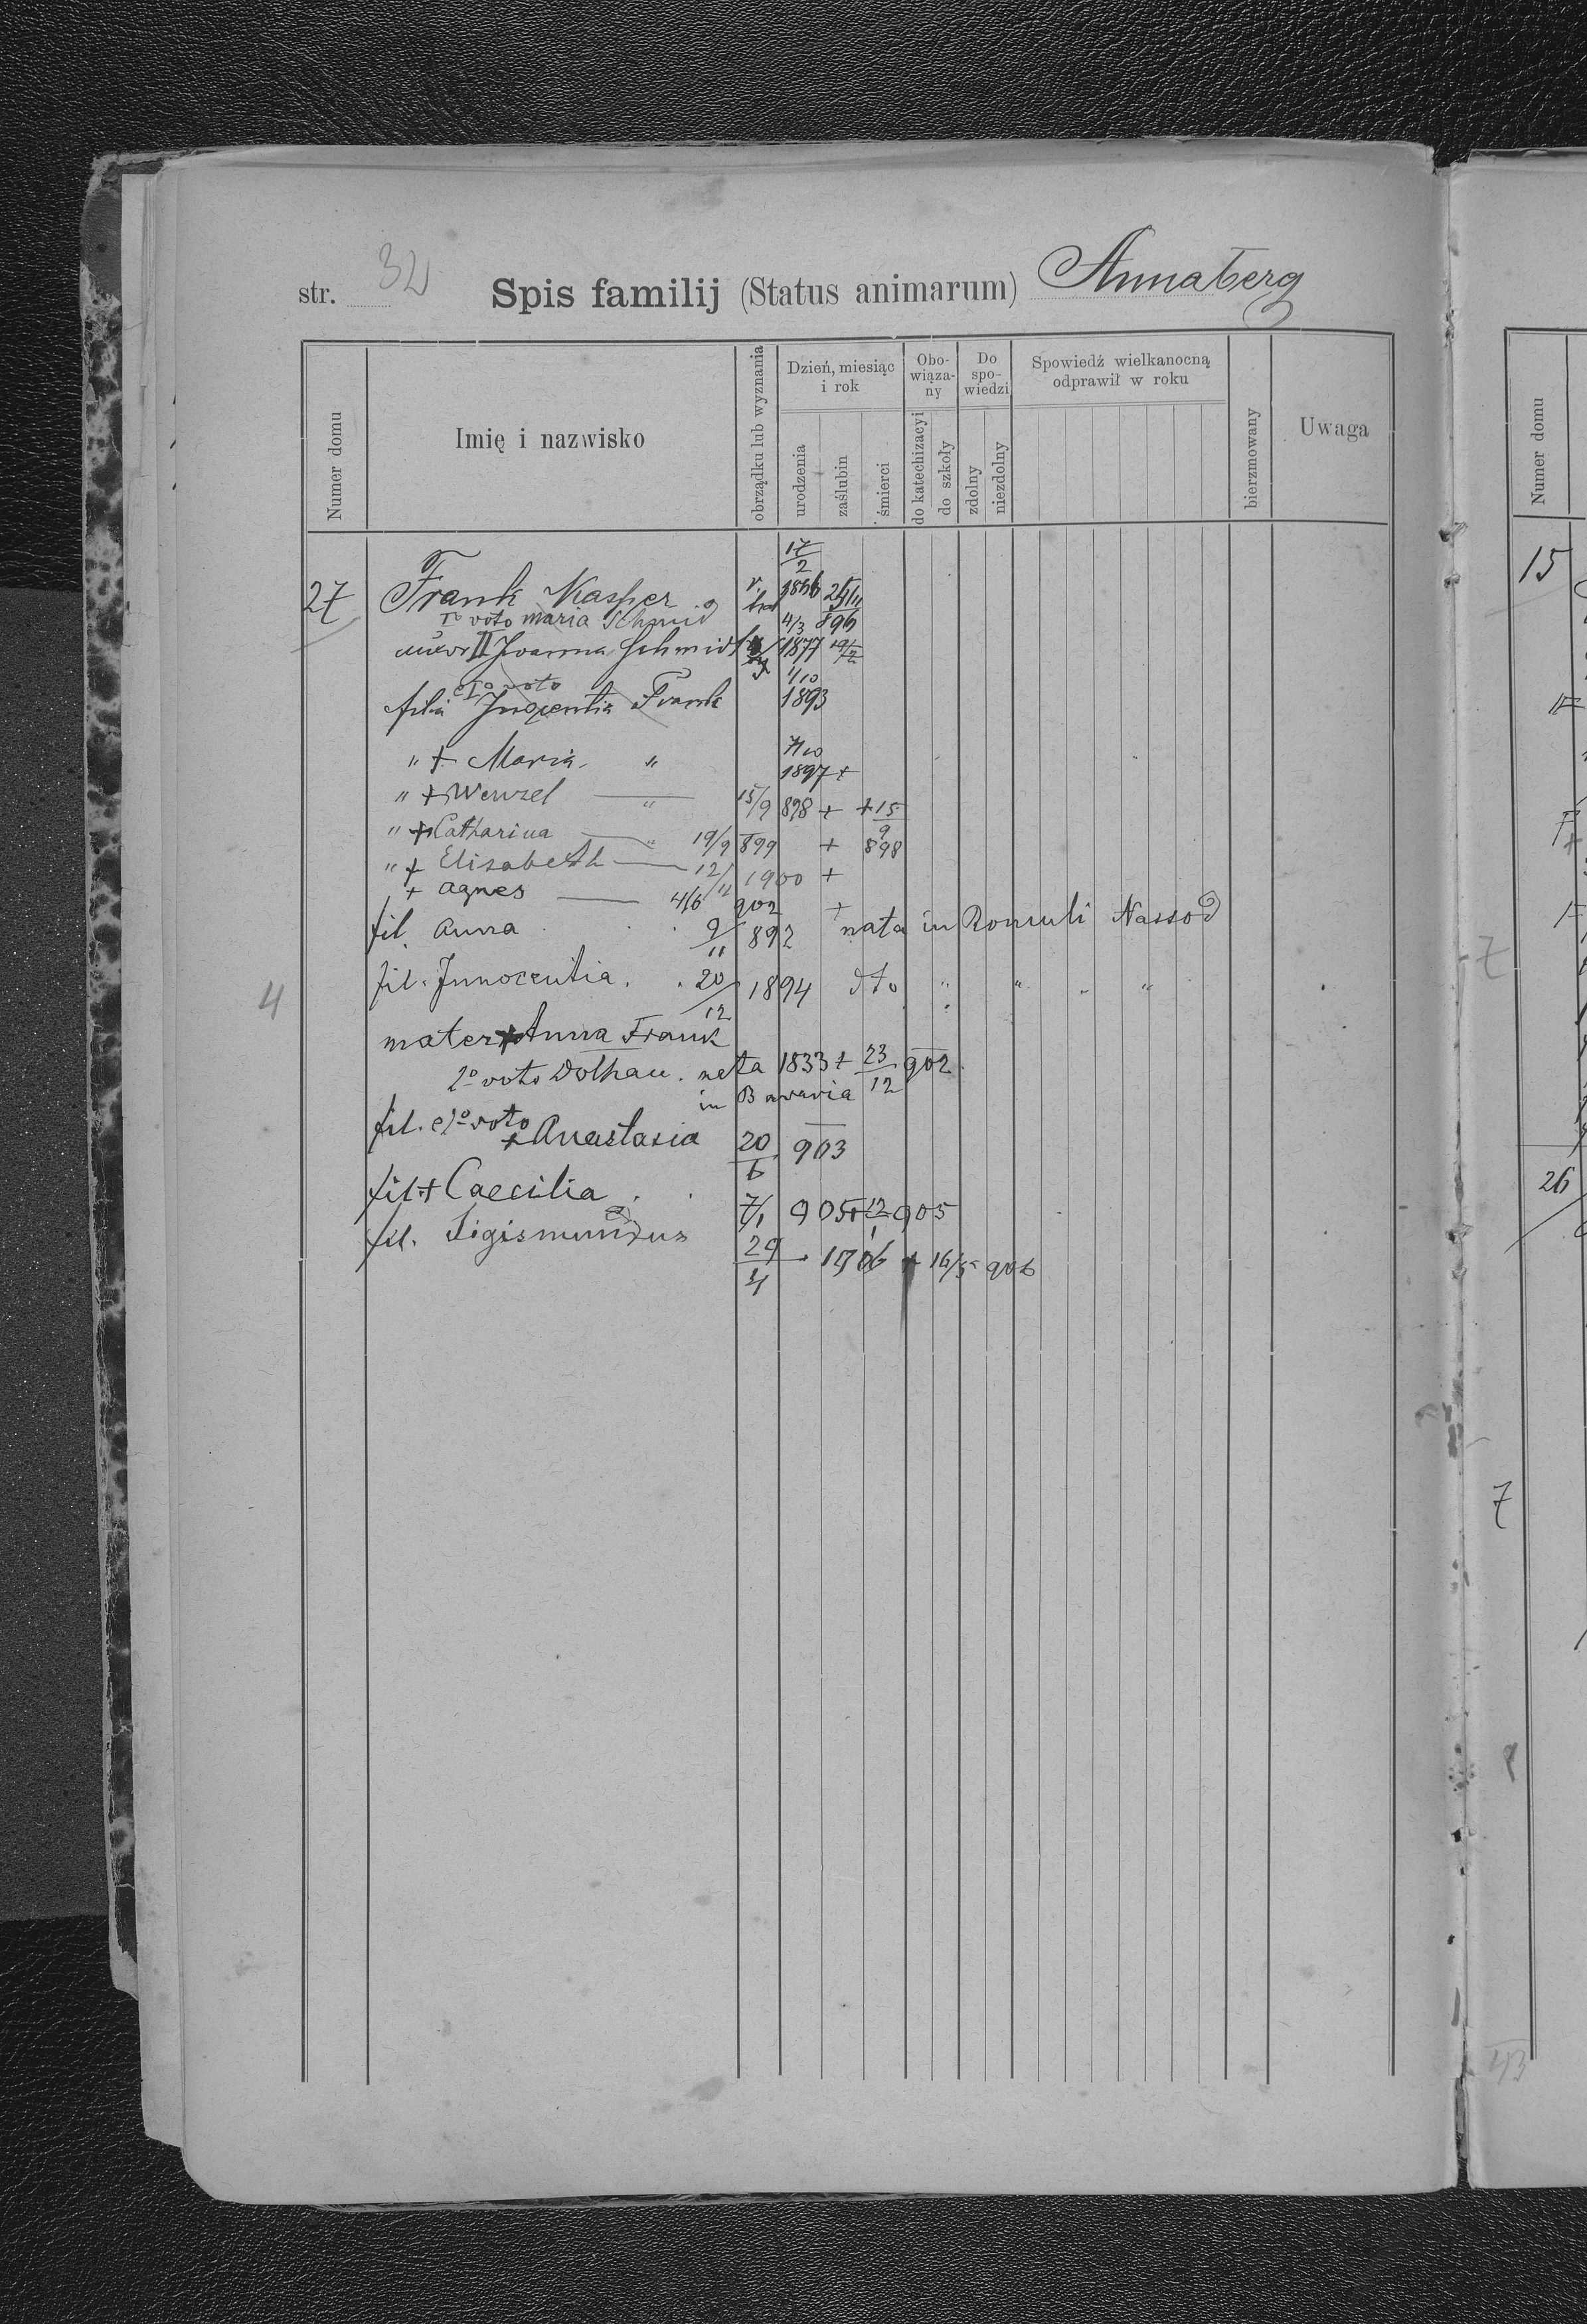 str. 32 Spis familij (Status animarum) Annaberg
Numer domu
Imię i nazwisko
obrządku lub wyznania
Dzień, miesiąc i rok
urodzenia
zaślubin
śmierci
Obo-wiąza-ny
do katechizacyi
do szkoły
Do spo-wiedzi
zdolny
niezdolny
Spowiedź wielkanocną odprawił w roku
bierzmowany
Uwaga
17/2
27 Frank Kasper 1856 25/11
I° voto maria Schmid 4/3 896
uxor II Joanna Schmidt 1877
e I° voto 4/10
filia Frank 1893
7/10
" + Maria " 1897 +
" + Wenzel " 15/9 898 + + 15/9 898
" + Catharina " 19/9 899 +
" + Elisabeth 12/11 1900 +
+ Agnes 4/6 902 +
fil. Anna 9/11 892 nata in Romuli Nassod
4 fil. Innocentia 20/12 1894 dto " " " "
mater + Anna Frank
2° voto Dolhau. nata 1833 + 23/12 902
in Bavaria
fil. e 1° voto
+ Anastasia 20/6 903
fil + Caecilia 7/1 905 + 12/1 905
fil. Sigismundus 29/4 1906 + 16/5 906
Numer domu
15
7
26
7
43